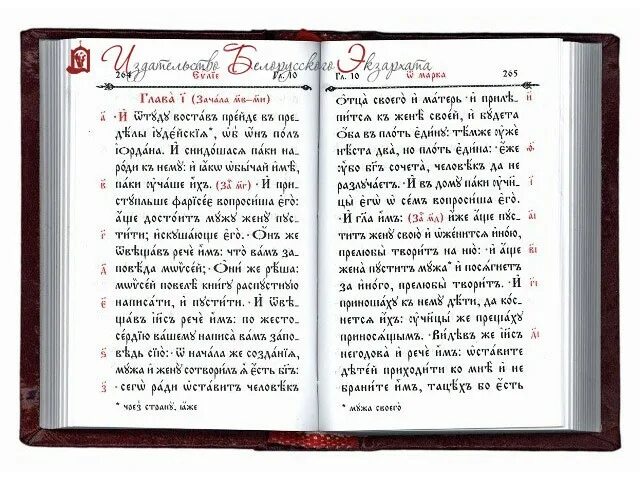 Издательство Белорусского Экзархата
264 Єѵⷢ҇лїе Гл. 10
Глава̀ ї (Зача̑ла м҃в-м҃и)
а҃ И҆ ѿтꙋ́дꙋ воста́въ прїи́де въ пре-
дѣ́лы і҆ꙋде̑йскїѧ*, ѡ҆б̾ ѡ҆́нъ по́лъ
і҆ѻрда́на. И҆ снидо́шасѧ па́ки на-
ро́ди къ немꙋ̀: и҆ ꙗ҆́кѡ ѡ҆бы́чай и҆мѣ̀,
в҃ па́ки ᲂу҆ча́ше и҆̀хъ. (За҄ м҃г) И҆ при-
стꙋ́пльше фарїсе́є вопроси́ша є҆го̀:
а҆́ще досто́итъ мꙋ́жꙋ женꙋ̀ пꙋс-
г҃ ти́ти; и҆скꙋша́юще є҆го̀. Ѻ҆́нъ же
ѿвѣща́въ речѐ и҆̀мъ: что̀ ва́мъ за-
д҃ повѣ́да мѡѷсе́й; Ѻ҆ни́ же рѣ́ша:
мѡѷсе́й повелѣ̀ кни́гꙋ распꙋ́стнꙋю
є҃ написа́ти, и҆ пꙋсти́ти. И҆ ѿвѣ-
ща́въ і҆и҃съ речѐ и҆̀мъ: по жесто-
се́рдїю ва́шемꙋ написа̀ ва́мъ за́по-
ѕ҃ вѣдь сїю̀: Ѿ нача́ла же созда́нїѧ,
мꙋ́жа и҆ женꙋ̀ сотвори́лъ ѧ҆̀ є҆́сть бг҃ъ:
з҃ сегѡ̀ ра́ди ѡ҆ста́витъ человѣ́къ
* чрез̾ странꙋ̀, ꙗ҆́же
Гл. 10 Ѿ ма́рка 265
ѻ҆тца̀ своего̀ и҆ ма́терь и҆ прилѣ- и҃
пи́тсѧ къ женѣ̀ свое́й, и҆ бꙋ́дета
ѻ҆́ба въ пло́ть є҆ди́нꙋ: тѣ́мже ᲂу҆жѐ
нѣ́ста два̀, но пло́ть є҆ди́на: є҆́же ѳ҃
ᲂу҆̀бо бг҃ъ сочета̀, человѣ́къ да не
разлꙋча́етъ. И҆ въ домꙋ̀ па́ки ᲂу҆чн҃- і҃
цы̀ є҆гѡ̀ ѡ҆ се́мъ вопроси́ша є҆го̀.
И҆ гл҃а и҆̀мъ: (За҄ м҃д) и҆́же а҆́ще пꙋ́с- а҃і
титъ женꙋ̀ свою̀ и҆ ѡ҆же́нитсѧ и҆но́ю,
прелюбы̀ твори́тъ на ню̀: и҆ а҆́ще в҃і
жена̀ пꙋ́ститъ мꙋ́жа* и҆ посѧ́гнетъ
за и҆но́го, прелюбы̀ твори́тъ. И҆ г҃і
приноша́хꙋ къ немꙋ̀ дѣ́ти, да ко́с-
нетсѧ и҆́хъ: ᲂу҆чн҃цы́ же преща́хꙋ
принося́щымъ. Ви́дѣвъ же і҆и҃съ д҃і
негодова̀ и҆ речѐ и҆̀мъ: ѡ҆ста́вите
дѣте́й приходи́ти ко мнѣ̀ и҆ не
брани́те и҆̀мъ, тацѣ́хъ бо є҆́сть
* мꙋ́жа своего̀